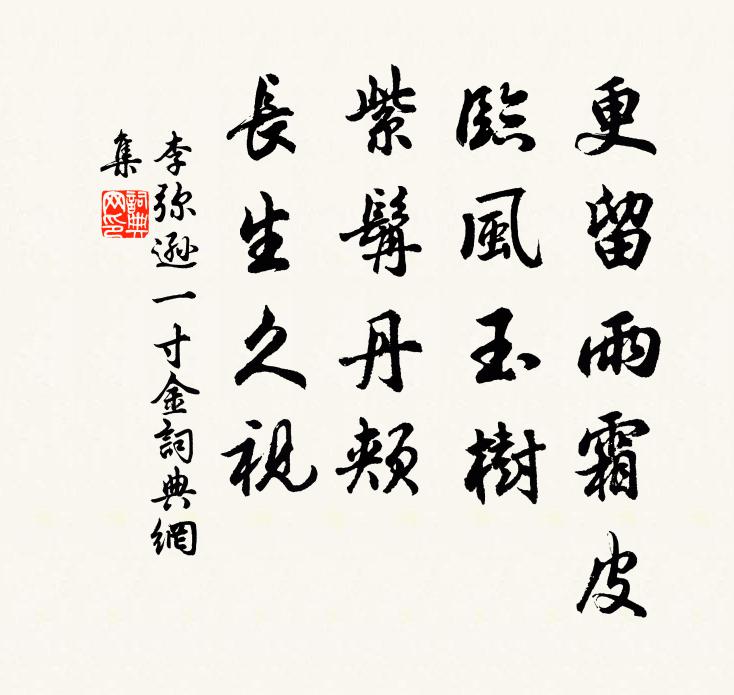 更留雨霜皮
臨風玉樹
紫髯丹頰
長生久視
李弥遜一寸金詞典網
集
詞典
网印